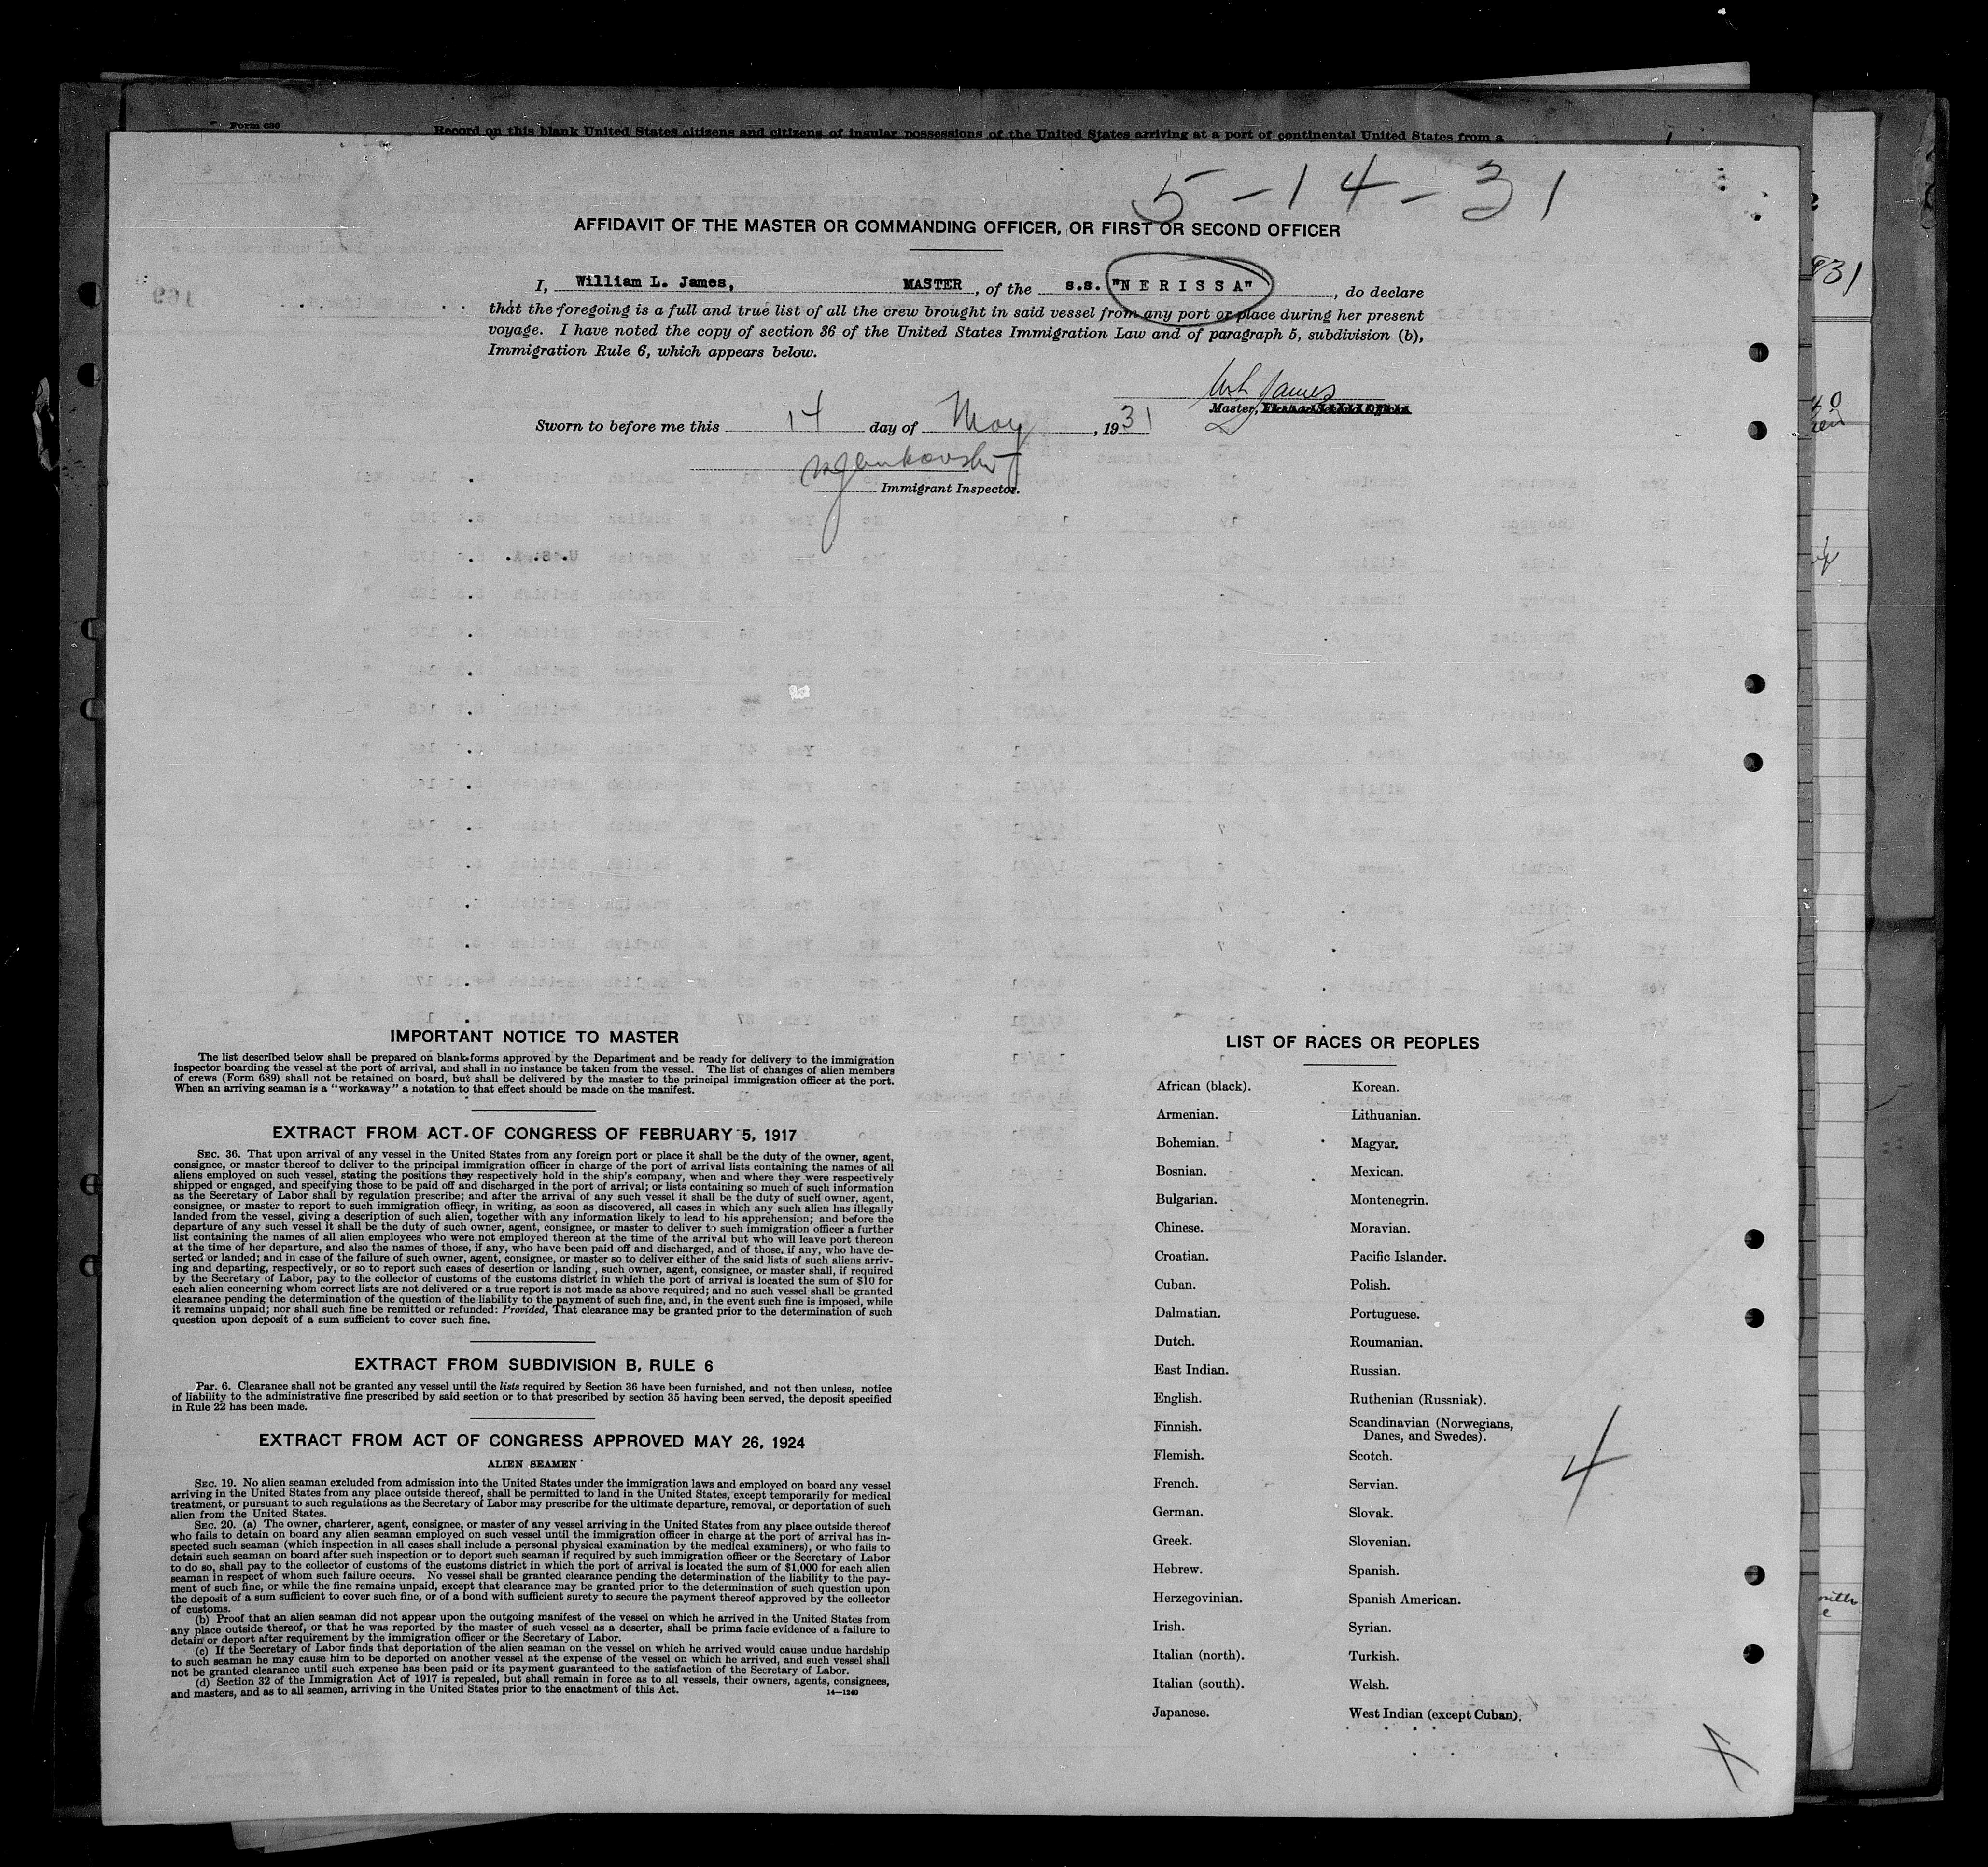 Form 689
Record on this blank United States citizens and citizens of insular possessions of the United States arriving at a port of continental United States from a
5-14-31
AFFIDAVIT OF THE MASTER OR COMMANDING OFFICER, OR FIRST OR SECOND OFFICER
I, William L. James, MASTER, of the s.s. "NERISSA", do declare
that the foregoing is a full and true list of all the crew brought in said vessel from any port or place during her present
voyage. I have noted the copy of section 36 of the United States Immigration Law and of paragraph 5, subdivision (b),
Immigration Rule 6, which appears below.
W L James
Master,
Sworn to before me this 14 day of May, 1931
Immigrant Inspector.
IMPORTANT NOTICE TO MASTER
The list described below shall be prepared on blank forms approved by the Department and be ready for delivery to the immigration
inspector boarding the vessel at the port of arrival, and shall in no instance be taken from the vessel. The list of changes of alien members
of crews (Form 689) shall not be retained on board, but shall be delivered by the master to the principal immigration officer at the port.
When an arriving seaman is a "workaway" a notation to that effect should be made on the manifest.
EXTRACT FROM ACT OF CONGRESS OF FEBRUARY 5, 1917
SEC. 36. That upon arrival of any vessel in the United States from any foreign port or place it shall be the duty of the owner, agent,
consignee, or master thereof to deliver to the principal immigration officer in charge of the port of arrival lists containing the names of all
aliens employed on such vessel, stating the positions they respectively hold in the ship's company, when and where they were respectively
shipped or engaged, and specifying those to be paid off and discharged in the port of arrival; or lists containing so much of such information
as the Secretary of Labor shall by regulation prescribe; and after the arrival of any such vessel it shall be the duty of such owner, agent,
consignee, or master to report to such immigration officer, in writing, as soon as discovered, all cases in which any such alien has illegally
landed from the vessel, giving a description of such alien, together with any information likely to lead to his apprehension; and before the
departure of any such vessel it shall be the duty of such owner, agent, consignee, or master to deliver to such immigration officer a further
list containing the names of all alien employees who were not employed thereon at the time of the arrival but who will leave port thereon
at the time of her departure, and also the names of those, if any, who have been paid off and discharged, and of those, if any, who have de-
serted or landed; and in case of the failure of such owner, agent, consignee, or master so to deliver either of the said lists of such aliens arriv-
ing and departing, respectively, or so to report such cases of desertion or landing , such owner, agent, consignee, or master shall, if required
by the Secretary of Labor, pay to the collector of customs of the customs district in which the port of arrival is located the sum of $10 for
each alien concerning whom correct lists are not delivered or a true report is not made as above required; and no such vessel shall be granted
clearance pending the determination of the question of the liability to the payment of such fine, and, in the event such fine is imposed, while
it remains unpaid; nor shall such fine be remitted or refunded: Provided, That clearance may be granted prior to the determination of such
question upon deposit of a sum sufficient to cover such fine.
EXTRACT FROM SUBDIVISION B, RULE 6
Par. 6. Clearance shall not be granted any vessel until the lists required by Section 36 have been furnished, and not then unless, notice
of liability to the administrative fine prescribed by said section or to that prescribed by section 35 having been served, the deposit specified
in Rule 22 has been made.
EXTRACT FROM ACT OF CONGRESS APPROVED MAY 26, 1924
ALIEN SEAMEN
SEC. 19. No alien seaman excluded from admission into the United States under the immigration laws and employed on board any vessel
arriving in the United States from any place outside thereof, shall be permitted to land in the United States, except temporarily for medical
treatment, or pursuant to such regulations as the Secretary of Labor may prescribe for the ultimate departure, removal, or deportation of such
alien from the United States.
SEC. 20. (a) The owner, charterer, agent, consignee, or master of any vessel arriving in the United States from any place outside thereof
who fails to detain on board any alien seaman employed on such vessel until the immigration officer in charge at the port of arrival has in-
spected such seaman (which inspection in all cases shall include a personal physical examination by the medical examiners), or who fails to
detain such seaman on board after such inspection or to deport such seaman if required by such immigration officer or the Secretary of Labor
to do so, shall pay to the collector of customs of the customs district in which the port of arrival is located the sum of $1,000 for each alien
seaman in respect of whom such failure occurs. No vessel shall be granted clearance pending the determination of the liability to the pay-
ment of such fine, or while the fine remains unpaid, except that clearance may be granted prior to the determination of such question upon
the deposit of a sum sufficient to cover such fine, or of a bond with sufficient surety to secure the payment thereof approved by the collector
of customs.
(b) Proof that an alien seaman did not appear upon the outgoing manifest of the vessel on which he arrived in the United States from
any place outside thereof, or that he was reported by the master of such vessel as a deserter, shall be prima facie evidence of a failure to
detain or deport after requirement by the immigration officer or the Secretary of Labor.
(c) If the Secretary of Labor finds that deportation of the alien seaman on the vessel on which he arrived would cause undue hardship
to such seaman he may cause him to be deported on another vessel at the expense of the vessel on which he arrived, and such vessel shall
not be granted clearance until such expense has been paid or its payment guaranteed to the satisfaction of the Secretary of Labor.
(d) Section 32 of the Immigration Act of 1917 is repealed, but shall remain in force as to all vessels, their owners, agents, consignees,
and masters, and as to all seamen, arriving in the United States prior to the enactment of this Act.
14—1240
LIST OF RACES OR PEOPLES
African (black).
Armenian.
Bohemian.
Bosnian.
Bulgarian.
Chinese.
Croatian.
Cuban.
Dalmatian.
Dutch.
East Indian.
English.
Finnish.
Flemish.
French.
German.
Greek.
Hebrew.
Herzegovinian.
Irish.
Italian (north).
Italian (south).
Japanese.
Korean.
Lithuanian.
Magyar.
Mexican.
Montenegrin.
Moravian.
Pacific Islander.
Polish.
Portuguese.
Roumanian.
Russian.
Ruthenian (Russniak).
Scandinavian (Norwegians,
Danes, and Swedes).
Scotch.
Servian.
Slovak.
Slovenian.
Spanish.
Spanish American.
Syrian.
Turkish.
Welsh.
West Indian (except Cuban).
4
X